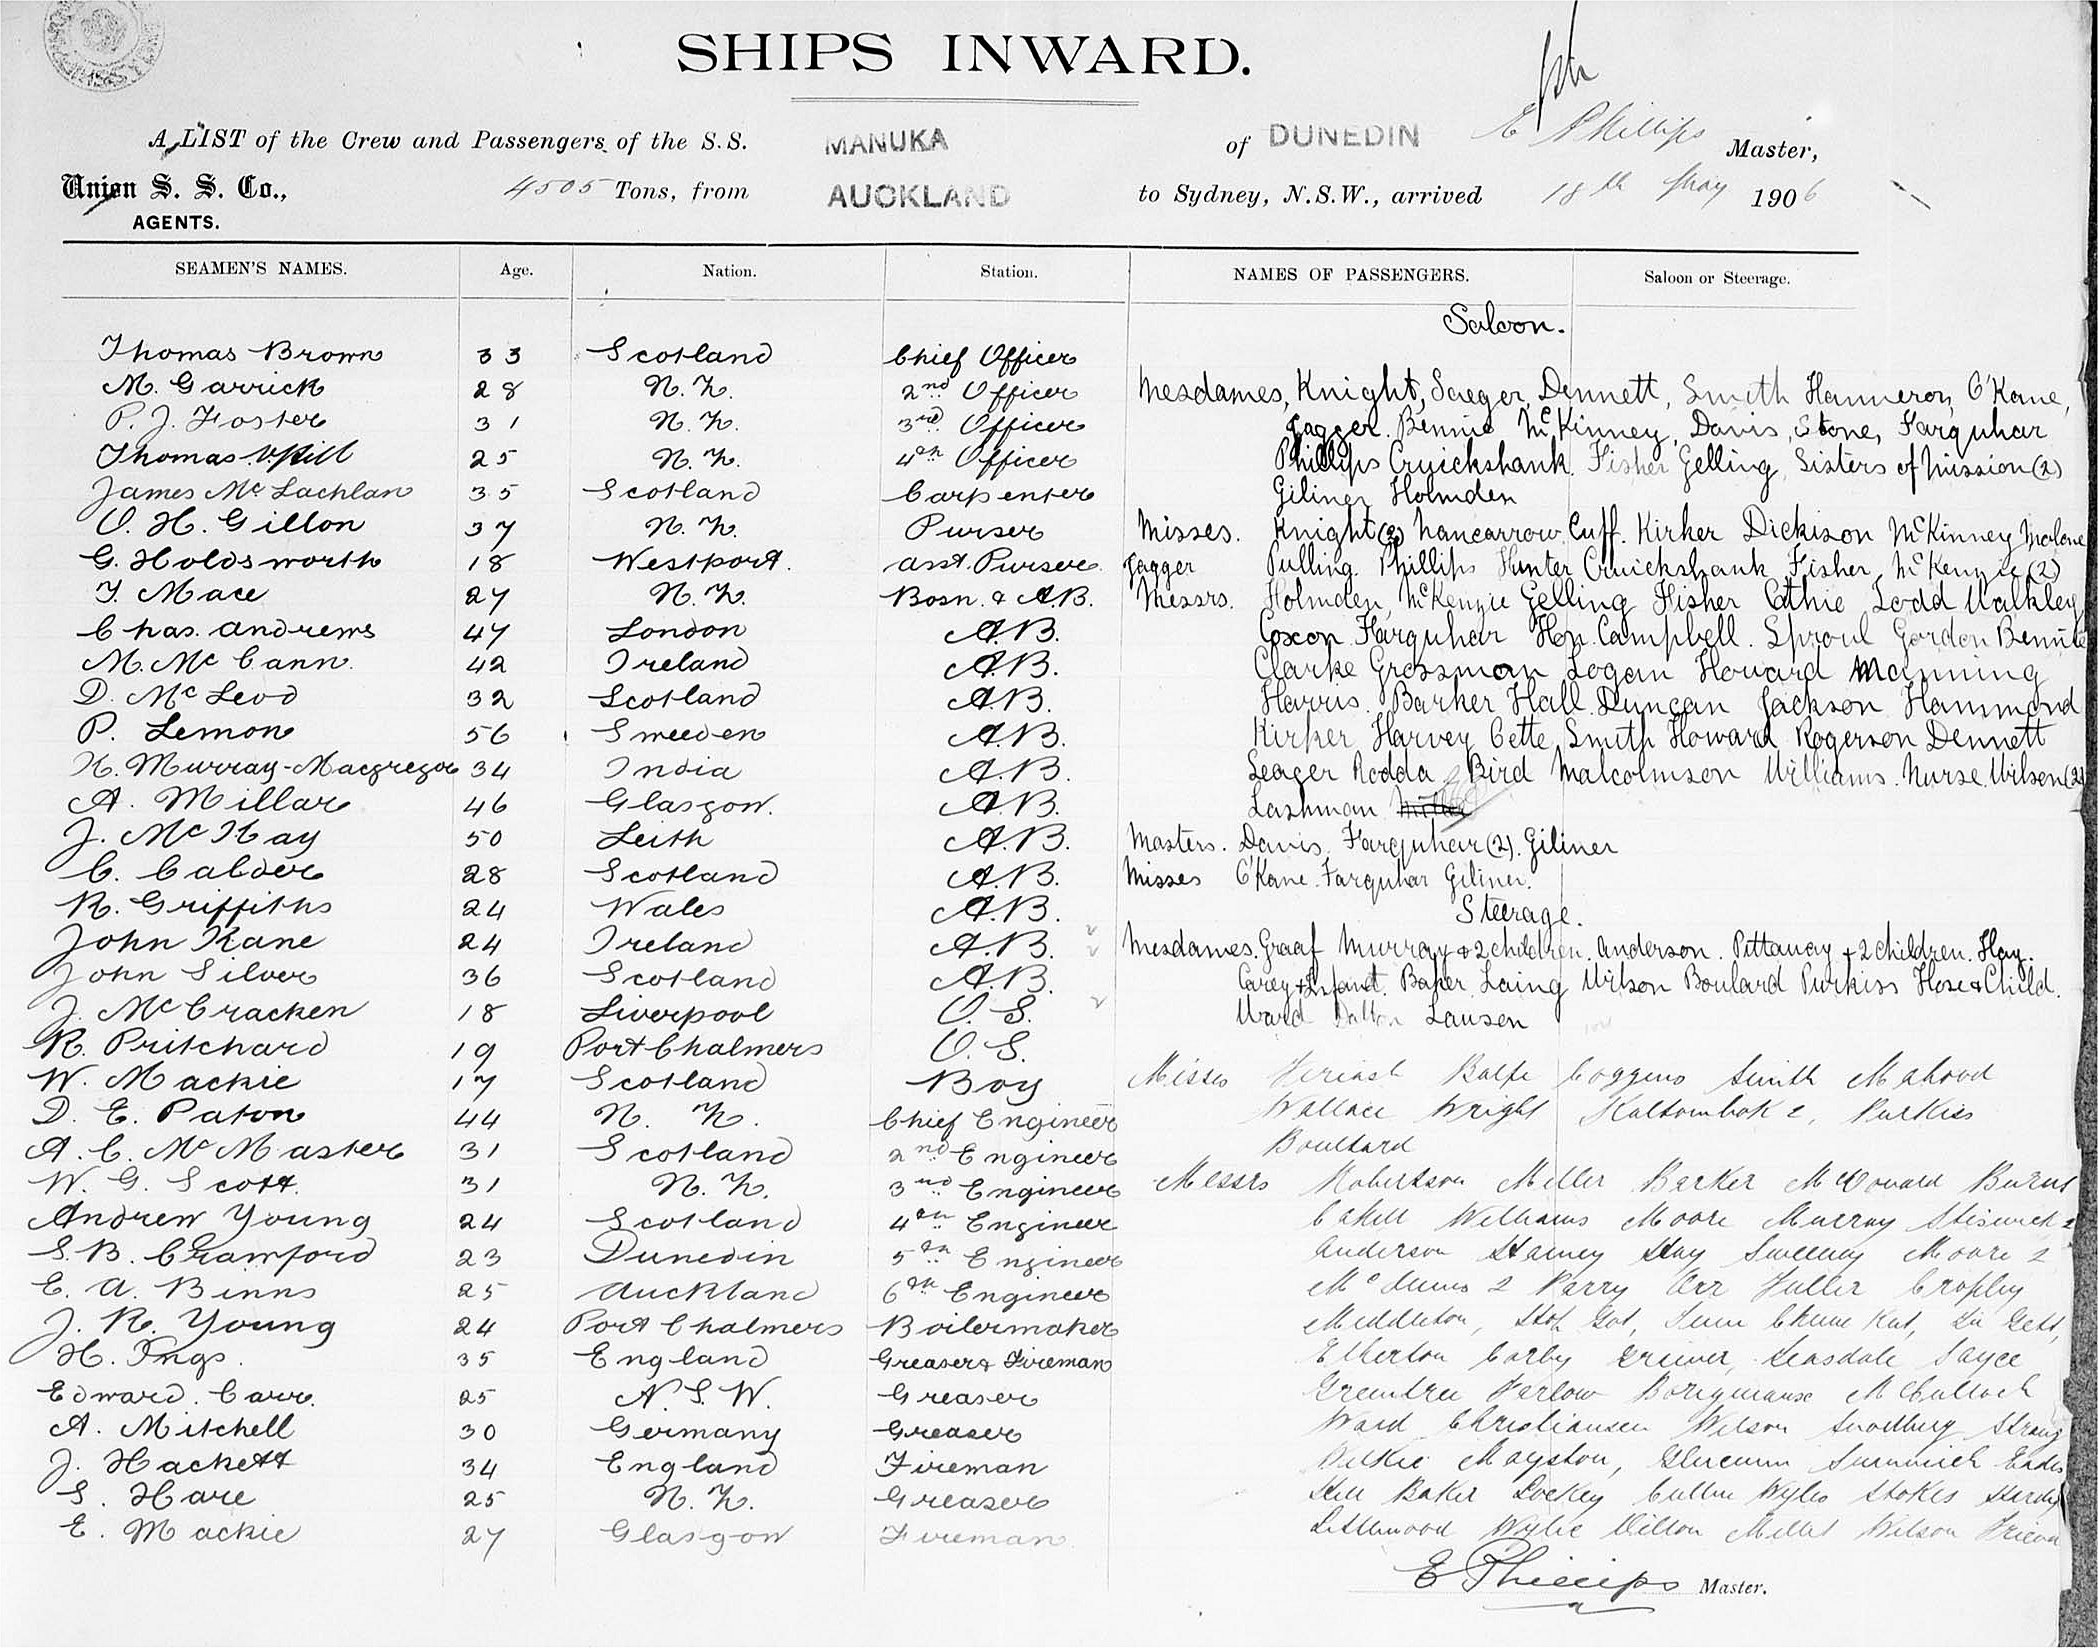 SHIPS INWARD.
A LIST of the Crew and Passengers of the S.S. MANUKA of DUNEDIN E Phillips Master,
Union S. S. Co., 4505 Tons, from AUCKLAND to Sydney, N.S.W., arrived 18th May 1906
AGENTS.
SEAMEN'S NAMES. Age. Nation. Station. NAMES OF PASSENGERS. Saloon or Steerage.
Saloon.
Thomas Brown 33 Scotland Chief Officer
M. Garrick 28 N. Z. 2nd Officer
P. J. Foster 31 N. Z. 3rd Officer
Thomas 25 N. Z. 4th Officer
James McLachlan 35 Scotland Carpenter
O. H. Gillon 37 N. Z. Purser
G. Holdsworth 18 Westport. asst. Purser
T. Mace 27 N. Z. Bosn. & A.B.
Chas. Andrews 47 London A.B.
M. McCann 42 Ireland A.B.
D. McLeod 32 Scotland A.B.
P. Lemon 56 Sweeden A.B.
H. Murray-Macgregor 34 India A.B.
A. Millar 46 Glasgow. A.B.
J. McKay 50 Leith A.B.
C. Calder 28 Scotland A.B.
R. Griffiths 24 Wales A.B.
John Kane 24 Ireland A.B.
John Silver 36 Scotland A.B.
J. McCracken 18 Liverpool O. S.
R. Pritchard 19 Port Chalmers O. S.
W. Mackie 17 Scotland Boy
D. E. Paton 44 N. Z. Chief Engineer
A. C. McMaster 31 Scotland 2nd Engineer
W. G. Scott 31 N. Z. 3rd Engineer
Andrew Young 24 Scotland 4th Engineer
S. B. Crawford 23 Dunedin 5th Engineer
E. A. Binns 25 Auckland 6th Engineer
J. R. Young 24 Port Chalmers Boilermaker
H. Ings. 35 England Greaser & Fireman
Edward Carr. 25 N. S. W. Greaser
A. Mitchell 30 Germany Greaser
J. Hackett 34 England Fireman
S. Hare 25 N. Z. Greaser
E. Mackie 27 Glasgow Fireman
Mesdames, Knight, Seager, Dennett, Smith Hammeron, O'Kane,
Jagger. Bennie McKinney, Davis, Stone, Farquhar
Phillips Cruickshank. Fisher Gelling, Sisters of Mission (2)
Giliner Holmden
Misses. Knight (2) Nancarrow. Cuff. Kirker Dickison McKinney Malone
Jagger Pulling. Phillips Hunter Cruickshank Fisher McKenzie (2)
Messrs. Holmden, McKenzie Gelling Fisher Cathie Lodd Walkley
Coxon Farquhar Hon. Campbell. Sproul Gordon Bennie
Clarke Grossman Logan Howard Manning
Harris. Barker Hall Duncan Jackson Hammond
Kirker Harvey Cette Smith Howard Rogerson Dennett
Seager Rodda Bird Malcolmson Williams. Nurse. Wilson (2)
Lashman
Masters. Davis, Farquhar (2). Giliner
Misses O'Kane. Farquhar Giliner.
Steerage.
Mesdames. Graaf Murray + 2 children. Anderson. Pittaway + 2 children. Hay.
Carey + Infant. Baker Laing Wilson Boulard Purkiss Hose & Child.
Ward Dalton Lausen
Misses Balfe Coggins Smith Mahood
Wallace Wright Purkiss
Boullard
Messrs Robertson Miller Barker Burns
Cahill Williams Moore Murray
Anderson Hay Sweeney Moore 2
2 Parry Orr Fuller Cropley
Middleton,
Etherton Corby Leasdale Sayce
Greentree Farlow McCulloch
Ward Christiansen Wilson Strong
Wilkie Mayston,
Hill Baker Lockey Wyles Stokes Hardy
Littlewood Wylie Dillon Millet Wilson
E Phillips Master.